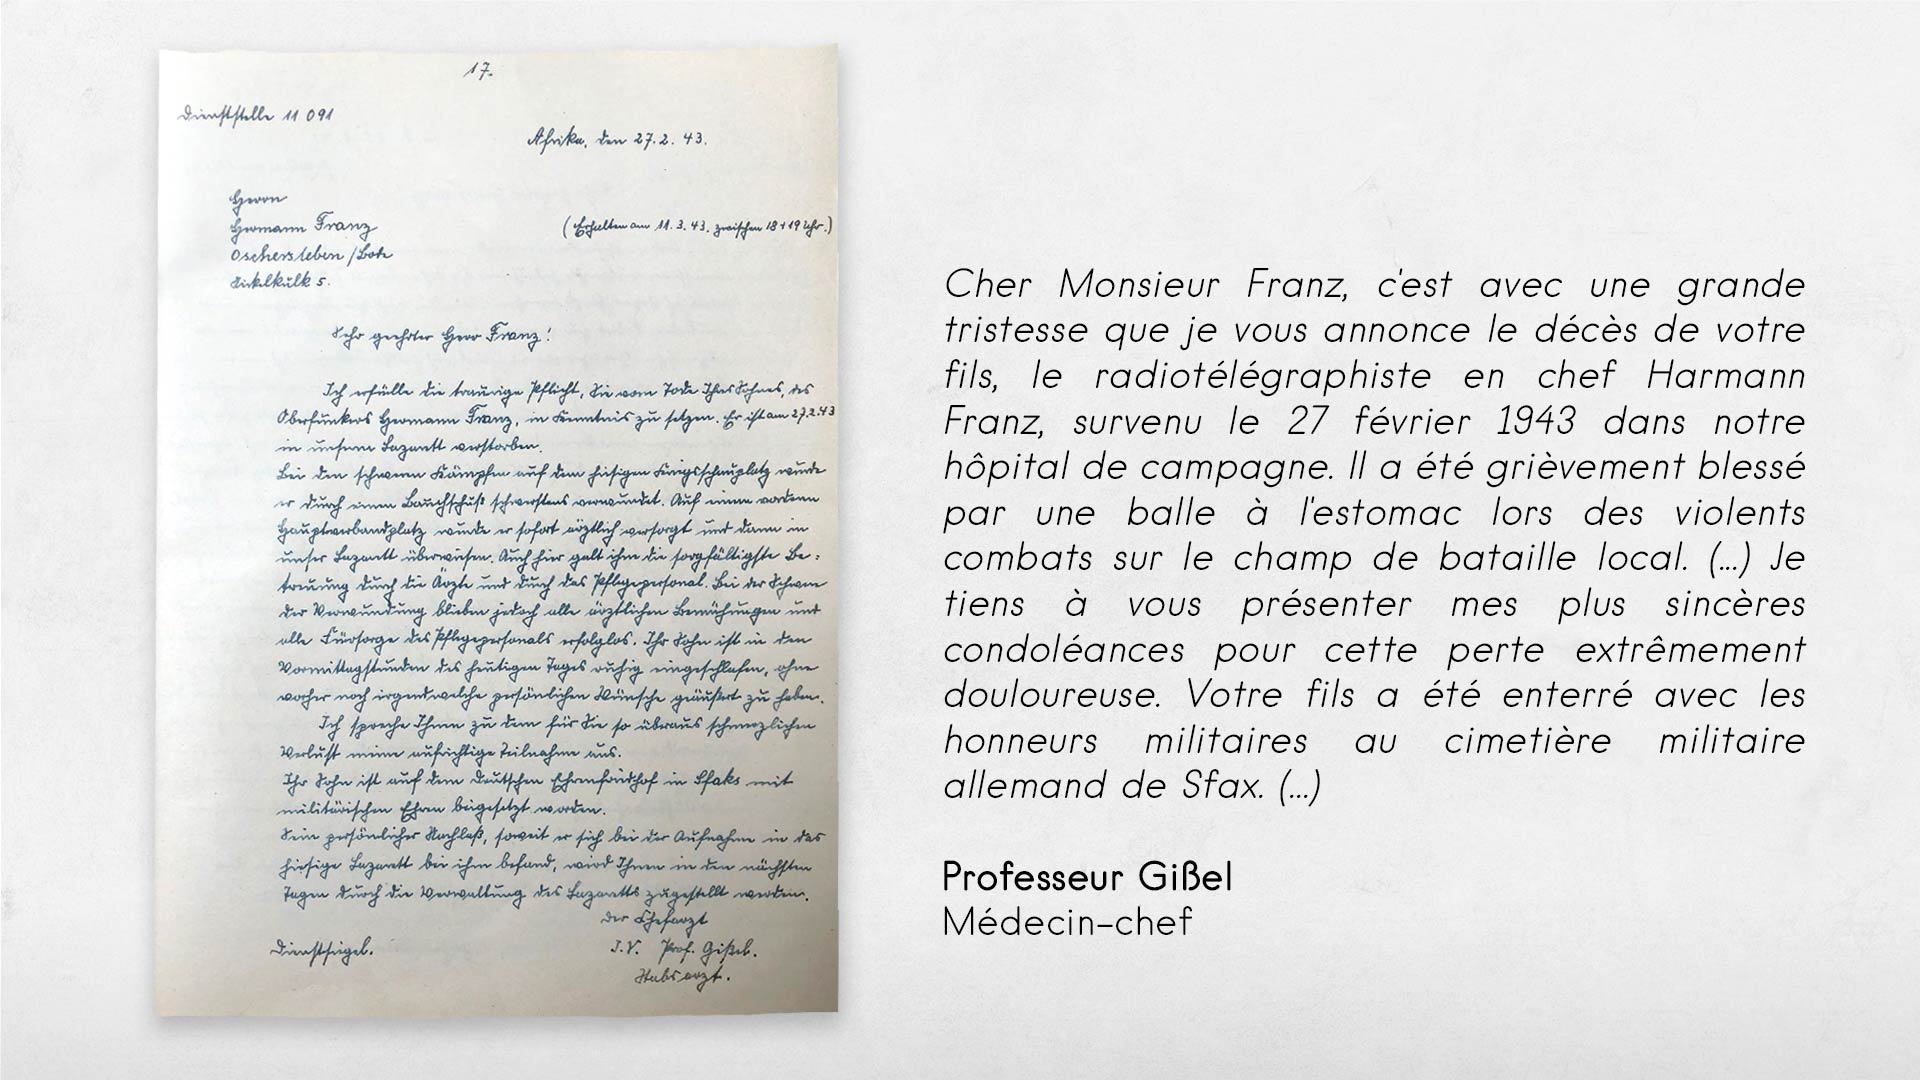 17.
Dienststelle 11 091
Afrika, den 27.2.43.
Herrn
Hermann Franz
(Erhalten am 11.3.43. zwischen 18+19 Uhr.)
Oschersleben/Bode
5.
Sehr geehrter Herr Franz!
Ich erfülle die traurige Pflicht, Sie vom Tode Ihres Sohnes, des
Oberfunkers Hermann Franz, in Kenntnis zu setzen. Er ist am 27.2.43
in unserm Lazarett verstorben.
Bei den schweren Kämpfen auf dem hiesigen Kriegsschauplatz wurde
er durch einen Bauchschuß schwerstens verwundet. Auf einem vorderen
Hauptverbandplatz wurde er sofort ärztlich versorgt und dann in
unser Lazarett überwiesen. Auch hier galt ihm die sorgfältigste Be=
treuung durch die Ärzte und durch das Pflegepersonal. Bei der Schwere
der Verwundung blieben jedoch alle ärztlichen Bemühungen und
alle Fürsorge des Pflegepersonals erfolglos. Ihr Sohn ist in den
Vormittagstunden des heutigen Tages ruhig eingeschlafen, ohne
vorher noch irgendwelche persönlichen Wünsche geäußert zu haben.
Ich spreche Ihnen zu dem für Sie so überaus schmerzlichen
Verlust meine aufrichtige Teilnahme aus.
Ihr Sohn ist auf dem Deutschen Ehrenfriedhof in Sfaks mit
militärischen Ehren beigesetzt worden.
Sein persönlicher Nachlaß, soweit er sich bei der Aufnahme in das
hiesige Lazarett bei ihm befand, wird Ihnen in den nächsten
Tagen durch die Verwaltung des Lazaretts zugestellt werden.
Der Chefarzt
Dienstsiegel.
I.V. Prof. Gißel.
Stabsarzt.
Cher Monsieur Franz, c'est avec une grande
tristesse que je vous annonce le décès de votre
fils, le radiotélégraphiste en chef Harmann
Franz, survenu le 27 février 1943 dans notre
hôpital de campagne. Il a été grièvement blessé
par une balle à l'estomac lors des violents
combats sur le champ de bataille local. (...) Je
tiens à vous présenter mes plus sincères
condoléances pour cette perte extrêmement
douloureuse. Votre fils a été enterré avec les
honneurs militaires au cimetière militaire
allemand de Sfax. (...)
Professeur Gißel
Médecin-chef